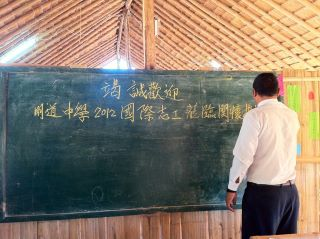 竭誠歡迎
明道中學2012國際志工蒞臨關懷